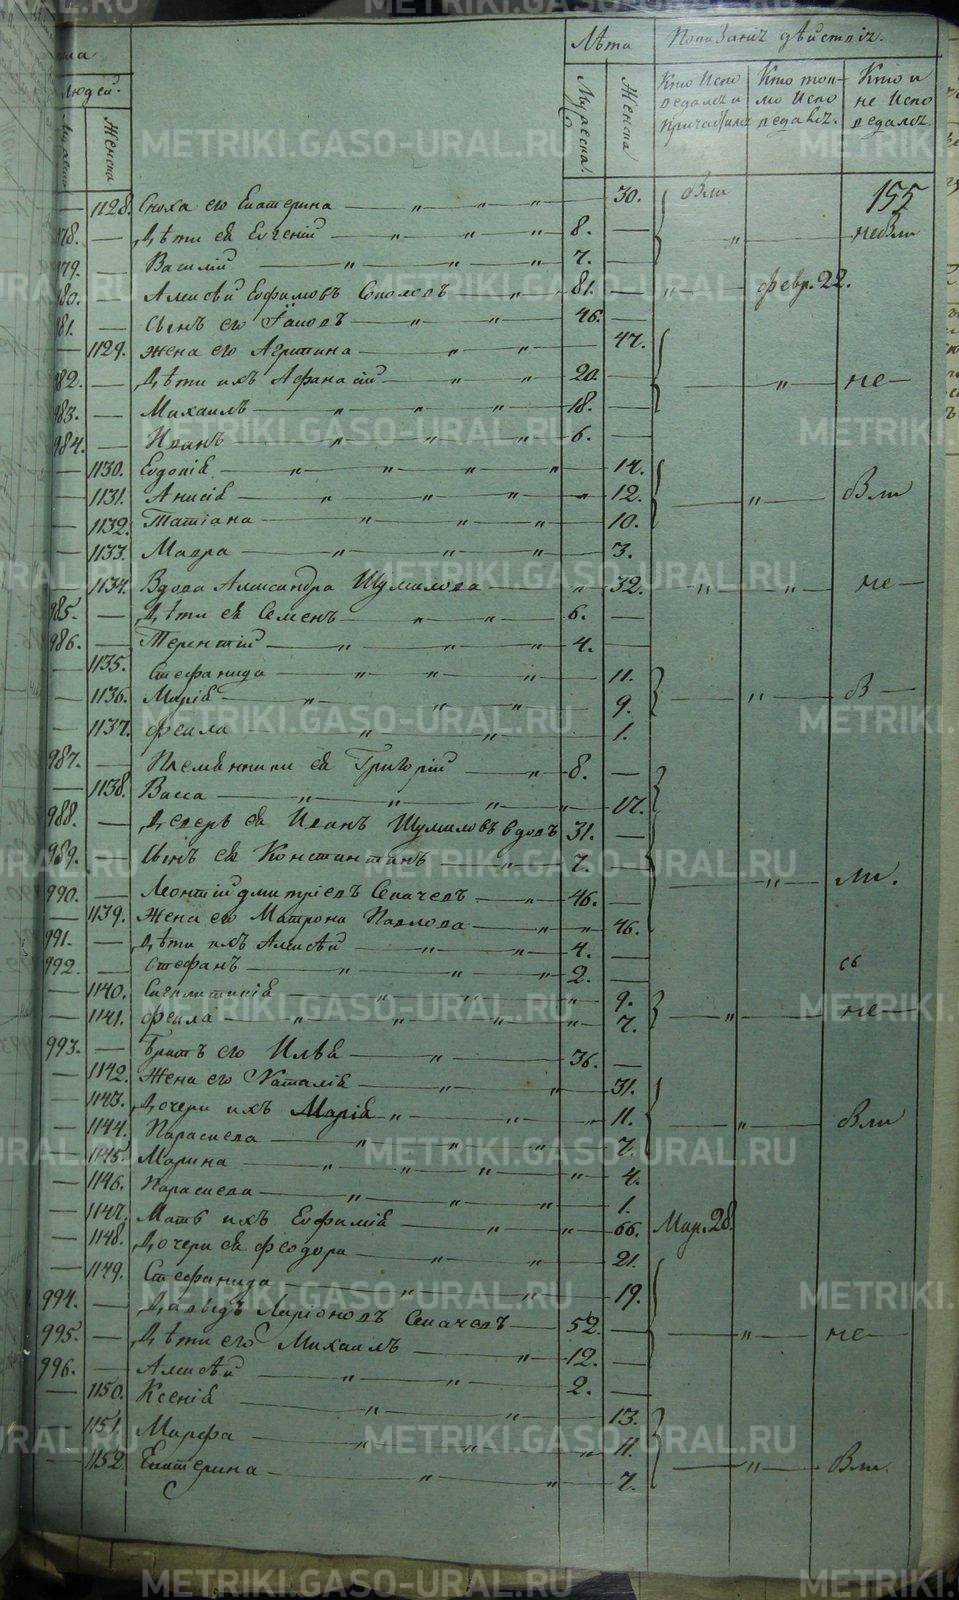 Лѣта Показанiе дѣйствiй.
Людей.
Мужеска. Женска Кто испо ведался и причастился Кто ток- мо испо ведался. Кто и не испо ведался.
Женска
155
1128. Сноха его Екатерина — " — " — " — 30. Были
978. — Дѣти ея Евгенiй — " — " — " — 8. — " — не были
979. — Василiй — " — " — " — 7. —
980. — Алексѣй Евфимовъ Соколовъ — " — 81. — " — февр. 22.
981. — Сынъ его Iаковъ — " — " — 46. —
— 1129. жена его Агрипина — " — " — 47.
982. — Дѣти ихъ Афанасiй — " — " — 20. — " — не —
983. — Михаилъ — " — " — " — 18. —
984. — Иванъ — " — " — " — 6. —
— 1130. Евдокiя — " — " — " — " — 14.
— 1131. Анисiя — " — " — " — " — 12. — " — были
— 1132. Татiана — " — " — " — 10.
— 1133. Мавра — " — " — " — 3.
— 1134. Вдова Александра Шумилова — " — 32. — " — " — не —
985. — Дѣти ея Семенъ — " — " — 6. —
986. — Терентiй — " — " — " — 4. —
— 1135. Стефанида — " — " — " — 11.
— 1136. Марiя — " — " — " — 9. — " — б —
— 1137. Фекла — " — " — 1.
987. — Племянники ея Григорiй — " — 8. —
— 1138. Васса — " — " — " — " — 17.
988. — Деверь ея Иванъ Шумиловъ вдовъ 31. —
989. — Сынъ ея Константинъ — " — 7. —
990. — Леонтiй Дмитрiевъ Сапачевъ — " — 46. — " — ли.
— 1139. Жена его Матрона Павлова — " — " — 46.
991. — Дѣти ихъ Алексѣй — " — " — 4. —
992. — Стефанъ — " — " — 2. —
— 1140. Сигклитикiя — " — " — " — 9.
— 1141. Фекла — " — " — " — " — " — 7. — " — не —
993. — Братъ его Илья — " — 36. —
— 1142. Жена его Наталiя — " — " — 31.
— 1143. Дочери ихъ Марiя — " — " — " — 11. — " — были
— 1144. Параскева — " — " — " — 7.
— 1145. Марина — " — " — " — " — 4.
— 1146. Параскева — " — " — " — 1.
— 1147. Мать ихъ Евфимiя — " — " — 66. Мар. 28.
— 1148. Дочери ея Феодора — " — " — 21.
— 1149. Стефанида — " — " — 19.
994. — Давыдъ Ларiоновъ Сапачевъ — 52. —
995. — Дѣти его Михаилъ — " — 12. — " — не —
996. — Алексѣй — " — " — 2. —
— 1150. Ксенiя — " — " — 13.
— 1151. Марфа — " — " — " — 11.
— 1152. Екатерина — " — " — 7. — " — Были.
METRIKI.GASO-URAL.RU